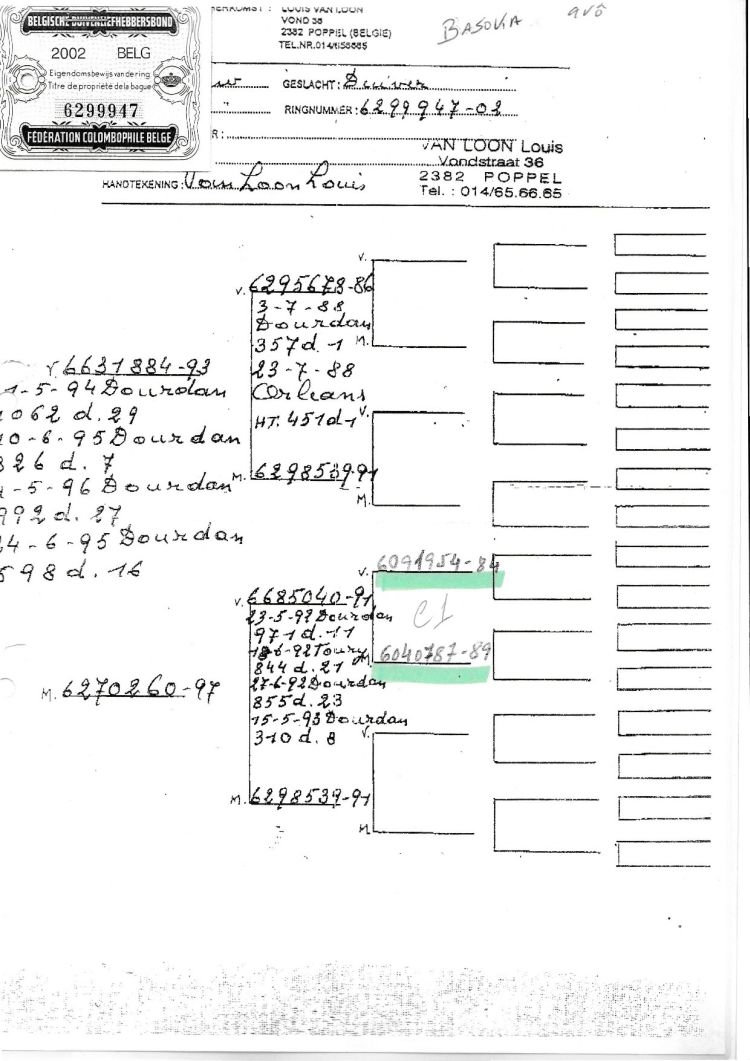 BELGISCHE DUIVENLIEFHEBBERSBOND
2002 BELG
Eigendomsbewijs van de ring
Titre de propriété de la bague
6299947
FÉDÉRATION COLOMBOPHILE BELGE
LOUIS VAN LOON
VOND 36
2382 POPPEL (BELGIË)
TEL.NR.014/656665
BASOVKA
GESLACHT: Duiver
RINGNUMMER: 6299947-02
VAN LOON Louis
Vondstraat 36
2382 POPPEL
Tel. : 014/65.66.65
HANDTEKENING: Van Loon Louis
V.
V. 6295678-86
3-7-88
Dourdan
357 d. 1
M.
23-7-88
Orleans
HT. 451 d 1
V.
M. 6298539-91
M.
V 6631884-93
1-5-94 Dourdan
062 d. 29
0-6-95 Dourdan
326 d. 7
-5-96 Dourdan
992 d. 27
24-6-95 Dourdan
598 d. 16
V. 6091954-84
C1
M. 6040787-89
V. 6685040-91
23-5-92 Dourdan
971 d. 11
6-92 Toury
844 d. 21
27-6-92 Dourdan
855 d. 23
15-5-93 Dourdan
310 d. 8
M. 6270260-97
V.
M. 6298539-91
M.